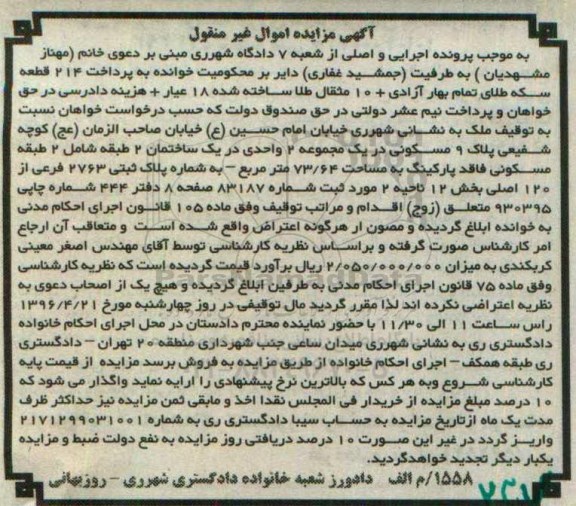 آگهی مزایده اموال غیر منقول
به موجب پرونده اجرایی و اصلی از شعبه ۷ دادگاه شهرری مبنی بر دعوی خانم (مهناز
مشهدیان ) به طرفیت (جمشید غفاری) دایر بر محکومیت خوانده به پرداخت ۲۱۴ قطعه
سکه طلای تمام بهار آزادی + ۱۰ مثقال طلا ساخته شده ۱۸ عیار + هزینه دادرسی در حق
خواهان و پرداخت نیم عشر دولتی در حق صندوق دولت که حسب درخواست خواهان نسبت
به توقیف ملک به نشانی شهرری خیابان امام حسین (ع) خیابان صاحب الزمان (عج) کوچه
شفیعی پلاک ۹ مسکونی در یک مجموعه ۲ واحدی در یک ساختمان ۲ طبقه شامل ۲ طبقه
مسکونی فاقد پارکینگ به مساحت ۷۳/۶۴ متر مربع – به شماره پلاک ثبتی ۲۷۶۳ فرعی از
۱۲۰ اصلی بخش ۱۲ ناحیه ۲ مورد ثبت شماره ۸۳۱۸۷ صفحه ۸ دفتر ۴۴۴ شماره چاپی
۹۳۰۳۹۵ متعلق (زوج) اقدام و مراتب توقیف وفق ماده ۱۰۵ قانون اجرای احکام مدنی
به خوانده ابلاغ گردیده و مصون از هرگونه اعتراض واقع شده است و متعاقب آن ارجاع
امر کارشناس صورت گرفته و براساس نظریه کارشناسی توسط آقای مهندس اصغر معینی
کربکندی به میزان ۲/۰۵۰/۰۰۰/۰۰۰ ریال برآورد قیمت گردیده است که نظریه کارشناسی
وفق ماده ۷۵ قانون اجرای احکام مدنی به طرفین ابلاغ گردیده و هیچ یک از اصحاب دعوی به
نظریه اعتراضی نکرده اند لذا مقرر گردید مال توقیفی در روز چهارشنبه مورخ ۱۳۹۶/۴/۲۱
راس ساعت ۱۱ الی ۱۱/۳۰ با حضور نماینده محترم دادستان در محل اجرای احکام خانواده
دادگستری ری به نشانی شهرری میدان ساعی جنب شهرداری منطقه ۲۰ تهران – دادگستری
ری طبقه همکف – اجرای احکام خانواده از طریق مزایده به فروش برسد مزایده از قیمت پایه
کارشناسی شروع وبه هر کس که بالاترین نرخ پیشنهادی را ارایه نماید واگذار می شود که
۱۰ درصد مبلغ مزایده از خریدار فی المجلس نقدا اخذ و مابقی ثمن مزایده نیز حداکثر ظرف
مدت یک ماه ازتاریخ مزایده به حساب سیبا دادگستری ری به شماره ۲۱۷۱۲۹۹۰۳۱۰۰۱
واریز گردد در غیر این صورت ۱۰ درصد دریافتی روز مزایده به نفع دولت ضبط و مزایده
یکبار دیگر تجدید خواهدگردید.
۱۵۵۸/م الف دادورز شعبه خانواده دادگستری شهرری – روزبهانی